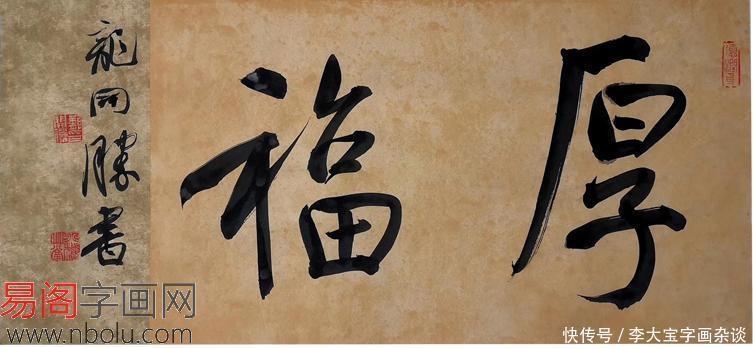 厚福
龍開勝書
易阁字画网
www.nbolu.com
快传号/李大宝字画杂谈